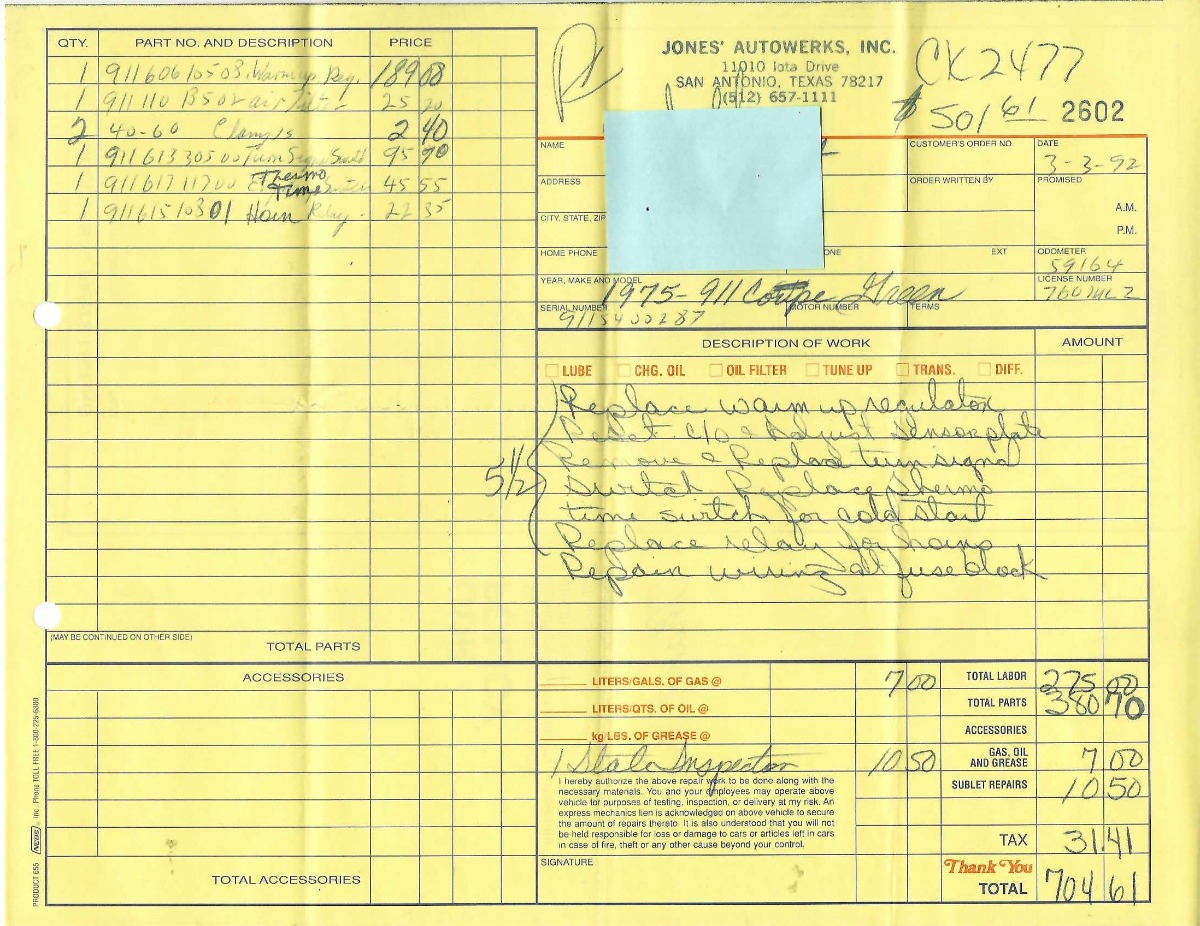 QTY. PART NO. AND DESCRIPTION PRICE
1 91160610503 Warmup Reg. 189 00
1 911 110 air 25 20
2 40-60 Clamps 2 40
1 911613 30500 Turn Sign 95 90
1 91161711700 Thermo Time 45 55
1 91161510301 Horn Relay. 22 35
(MAY BE CONTINUED ON OTHER SIDE) TOTAL PARTS
ACCESSORIES
TOTAL ACCESSORIES
PRODUCT 655 NEBS Inc. Phone TOLL FREE 1-800-225-6380
JONES' AUTOWERKS, INC.
11010 Iota Drive
SAN ANTONIO, TEXAS 78217
(512) 657-1111
CK 2477
$ 501 61
2602
NAME
CUSTOMER'S ORDER NO.
DATE
3-3-92
ADDRESS
ORDER WRITTEN BY
PROMISED
A.M.
P.M.
CITY, STATE, ZIP
HOME PHONE
ONE
EXT
ODOMETER
59164
YEAR, MAKE AND MODEL
1975-911 Coupe Green
LICENSE NUMBER
SERIAL NUMBER
9115400287
MOTOR NUMBER
TERMS
DESCRIPTION OF WORK AMOUNT
LUBE CHG. OIL OIL FILTER TUNE UP TRANS. DIFF.
Replace warm up regulator
Reset c/o & Adjust Sensor plate
Remove & Replace turn signal
5 1/2
Switch Replace Thermo
time switch for cold start
Replace relay for horns
Repair wiring at fuse block
LITERS/GALS. OF GAS @ 7 00
TOTAL LABOR 275 00
LITERS/QTS. OF OIL @
TOTAL PARTS 380 70
kg/LBS. OF GREASE @
ACCESSORIES
1 State Inspection 10 50
GAS, OIL AND GREASE 7 00
SUBLET REPAIRS 10 50
I hereby authorize the above repair work to be done along with the
necessary materials. You and your employees may operate above
vehicle for purposes of testing, inspection, or delivery at my risk. An
express mechanics lien is acknowledged on above vehicle to secure
the amount of repairs thereto. It is also understood that you will not
be held responsible for loss or damage to cars or articles left in cars
in case of fire, theft or any other cause beyond your control.
TAX 31.41
SIGNATURE
Thank You
TOTAL 704 61